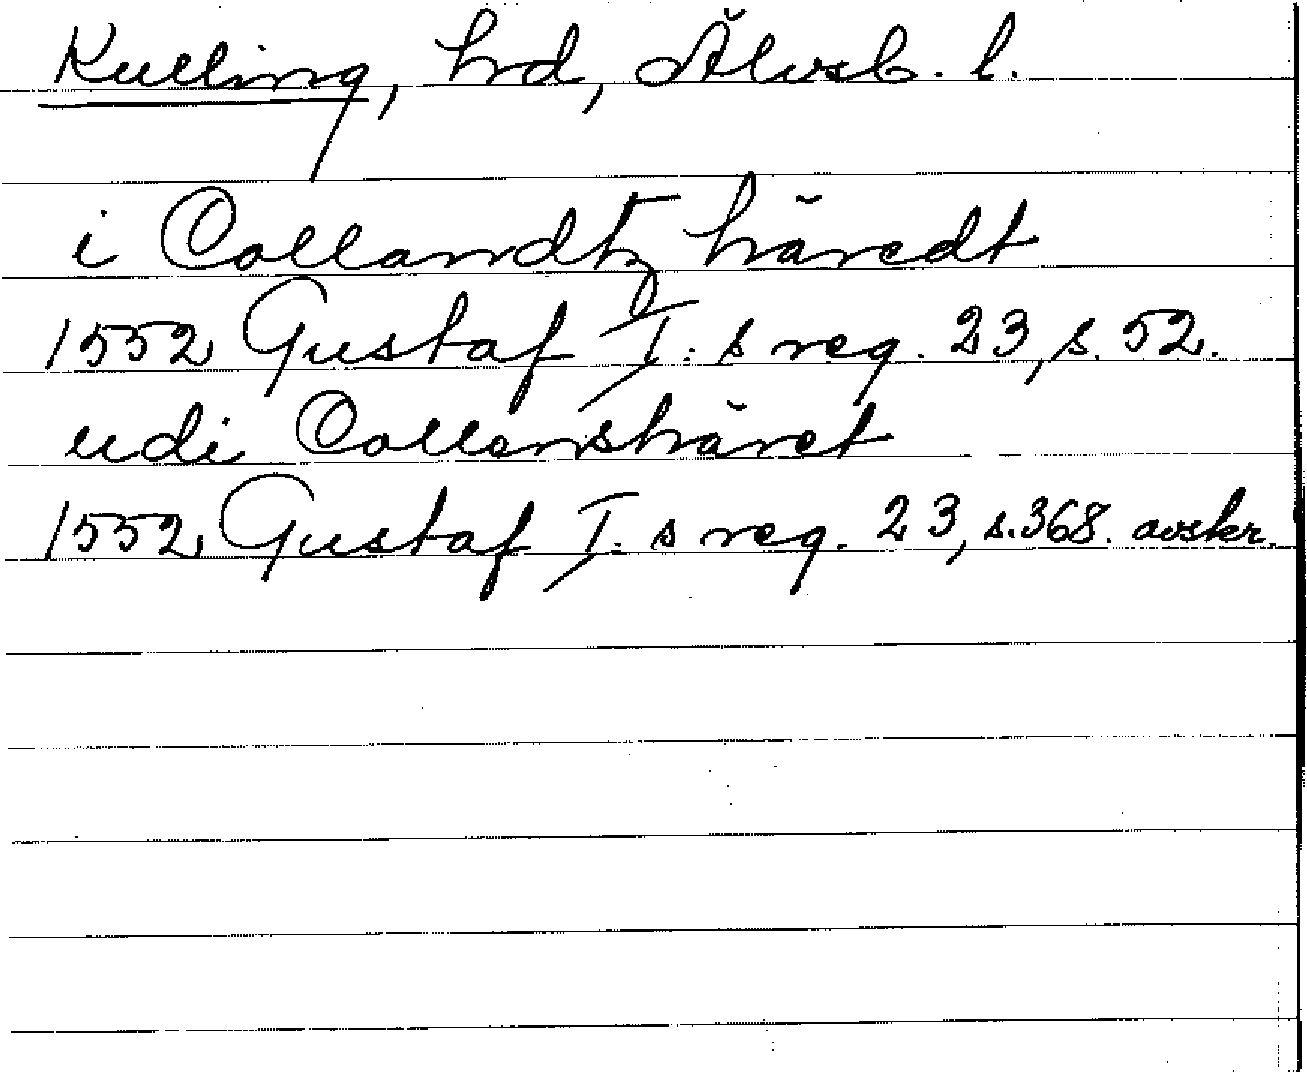 Kulling, hrd, Älvsb. l.
i Collandtz häredt
1552 Gustaf I:s reg. 23, s. 52.
udi Collenshäret
1552 Gustaf I:s reg. 23, s. 368. avskr.